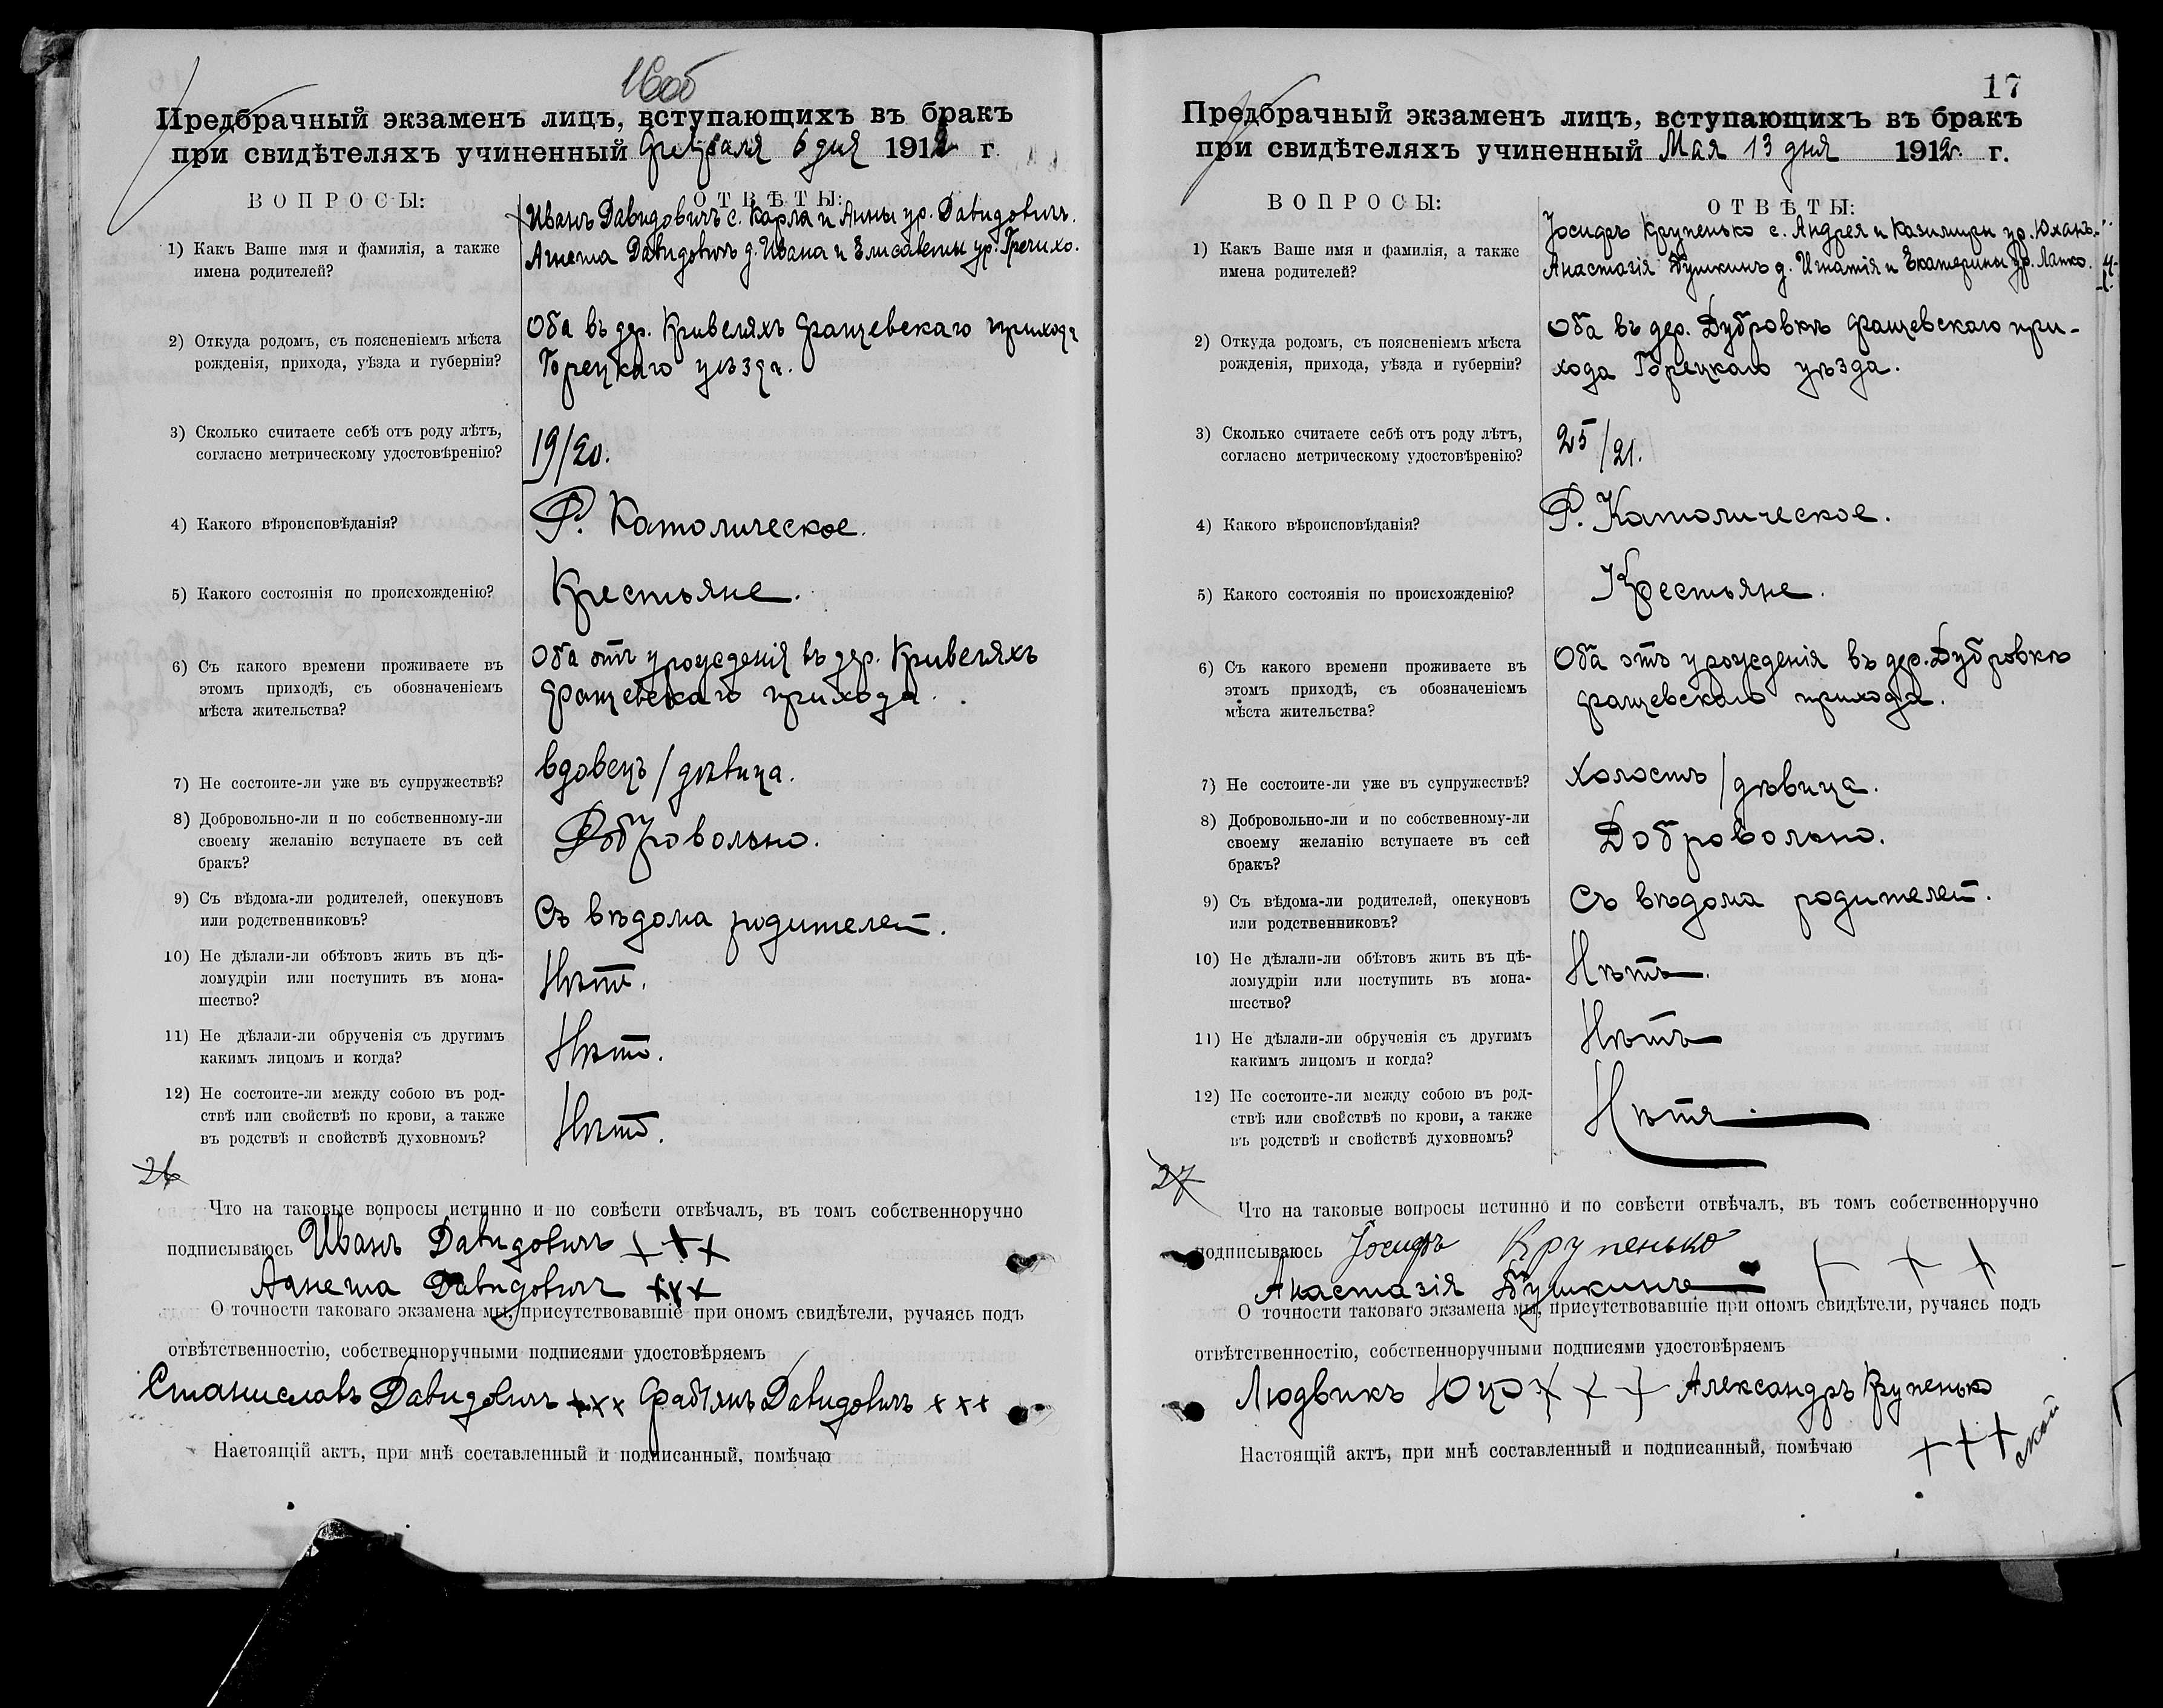 16об
Предбрачный экзаменъ лицъ, вступающихъ въ бракъ
при свидѣтеляхъ учиненный Февраля 6 дня 1912 г.
ВОПРОСЫ:
ОТВѢТЫ:
1) Какъ Ваше имя и фамилія, а также
имена родителей?
Иванъ Давидовичъ с. Карла и Анны ур. Давидовичъ.
Агнета Давидовичъ д. Ивана и Елисаветы ур. Гречихо.
2) Откуда родомъ, съ поясненіемъ мѣста
рожденія, прихода, уѣзда и губерніи?
Оба въ дер. Кривеляхъ Фащевскаго прихода
Горецкаго уѣзда.
3) Сколько считаете себѣ отъ роду лѣтъ,
согласно метрическому удостовѣренію?
19/20.
4) Какого вѣроисповѣданія?
Р. Католическое.
5) Какого состоянія по происхожденію?
Крестьяне.
6) Съ какого времени проживаете въ
этомъ приходѣ, съ обозначеніемъ
мѣста жительства?
Оба отъ урожденія въ дер. Кривеляхъ
Фащевскаго прихода.
7) Не состоите-ли уже въ супружествѣ?
вдовецъ / дѣвица.
8) Добровольно-ли и по собственному-ли
своему желанію вступаете въ сей
бракъ?
Добровольно.
9) Съ вѣдома-ли родителей, опекуновъ
или родственниковъ?
Съ вѣдома родителей.
10) Не дѣлали-ли обѣтовъ жить въ цѣ-
ломудріи или поступить въ мона-
шество?
Нѣтъ.
11) Не дѣлали-ли обрученія съ другимъ
какимъ лицомъ и когда?
Нѣтъ.
12) Не состоите-ли между собою въ род-
ствѣ или свойствѣ по крови, а также
въ родствѣ и свойствѣ духовномъ?
Нѣтъ.
26
Что на таковые вопросы истинно и по совѣсти отвѣчалъ, въ томъ собственноручно
подписываюсь Иванъ Давидовичъ +++
Агнета Давидовичъ +++
О точности таковаго экзамена мы, присутствовавшіе при ономъ свидѣтели, ручаясь подъ
отвѣтственностію, собственноручными подписями удостовѣряемъ
Станиславъ Давидовичъ +++ Фабіянъ Давидовичъ +++
Настоящій актъ, при мнѣ составленный и подписанный, помѣчаю
17
Предбрачный экзаменъ лицъ, вступающихъ въ бракъ
при свидѣтеляхъ учиненный Мая 13 дня 1912 г.
ВОПРОСЫ:
ОТВѢТЫ:
1) Какъ Ваше имя и фамилія, а также
имена родителей?
Іосифъ Крупенько с. Андрея и Казимиры ур.
Анастазія Пушкинъ д. Игнатія и Екатерины ур. Лапко.
2) Откуда родомъ, съ поясненіемъ мѣста
рожденія, прихода, уѣзда и губерніи?
Оба въ дер. Дубровкѣ Фащевскаго при-
хода Горецкаго уѣзда.
3) Сколько считаете себѣ отъ роду лѣтъ,
согласно метрическому удостовѣренію?
25/21.
4) Какого вѣроисповѣданія?
Р. Католическое.
5) Какого состоянія по происхожденію?
Крестьяне.
6) Съ какого времени проживаете въ
этомъ приходѣ, съ обозначеніемъ
мѣста жительства?
Оба отъ урожденія въ дер. Дубровкѣ
Фащевскаго прихода.
7) Не состоите-ли уже въ супружествѣ?
Холостъ / дѣвица.
8) Добровольно-ли и по собственному-ли
своему желанію вступаете въ сей
бракъ?
Добровольно.
9) Съ вѣдома-ли родителей, опекуновъ
или родственниковъ?
Съ вѣдома родителей.
10) Не дѣлали-ли обѣтовъ жить въ цѣ-
ломудріи или поступить въ мона-
шество?
Нѣтъ.
11) Не дѣлали-ли обрученія съ другимъ
какимъ лицомъ и когда?
Нѣтъ
12) Не состоите-ли между собою въ род-
ствѣ или свойствѣ по крови, а также
въ родствѣ и свойствѣ духовномъ?
Нѣтъ.
27
Что на таковые вопросы истинно и по совѣсти отвѣчалъ, въ томъ собственноручно
подписываюсь Іосифъ Крупенько
Анастазія Пушкинъ +++
О точности таковаго экзамена мы, присутствовавшіе при ономъ свидѣтели, ручаясь подъ
отвѣтственностію, собственноручными подписями удостовѣряемъ
Людвикъ +++ Александръ Крупенько
+++
Настоящій актъ, при мнѣ составленный и подписанный, помѣчаю